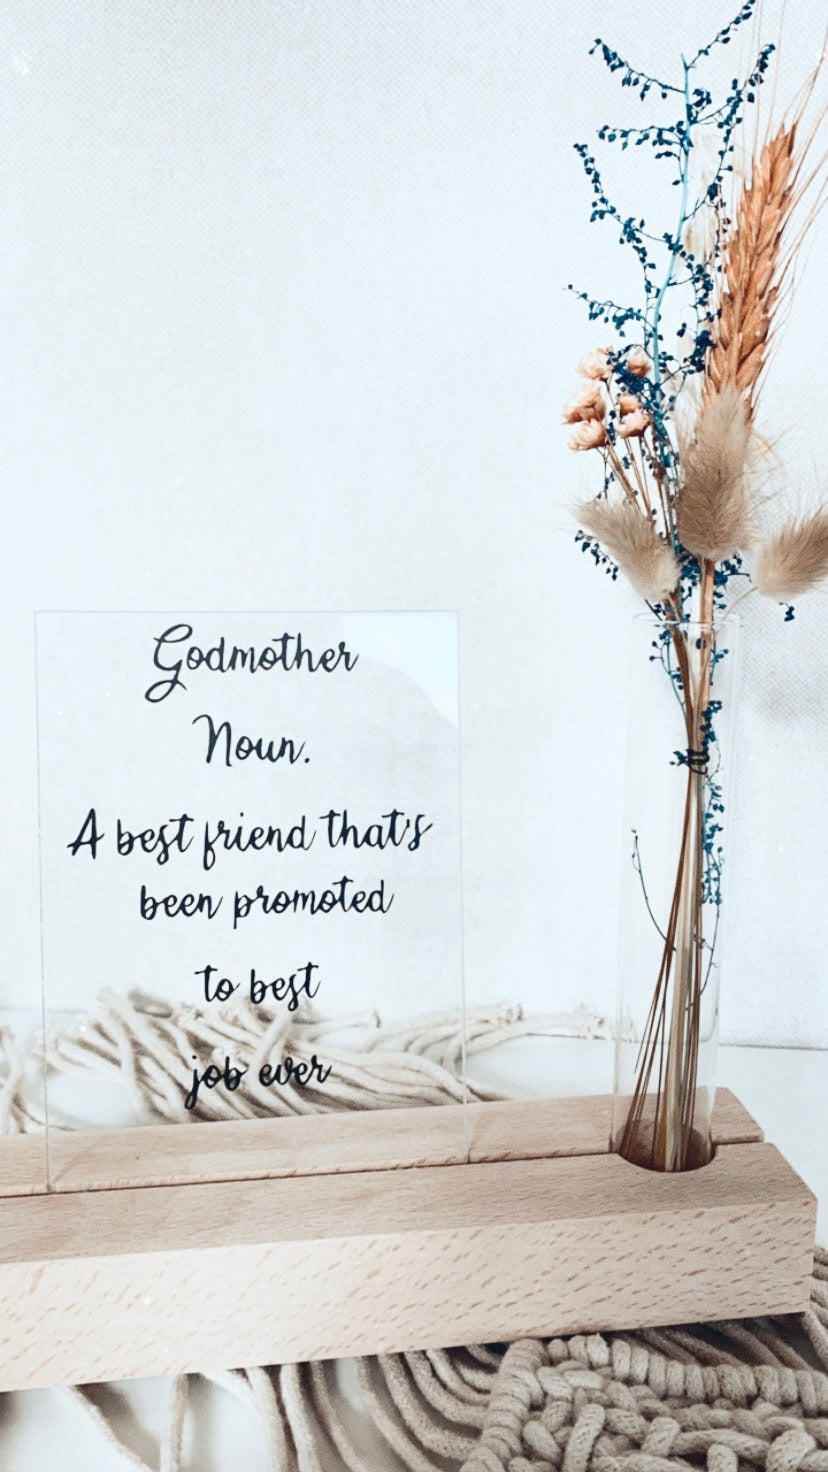 Godmother
Noun.
A best friend that's
been promoted
to best
job ever